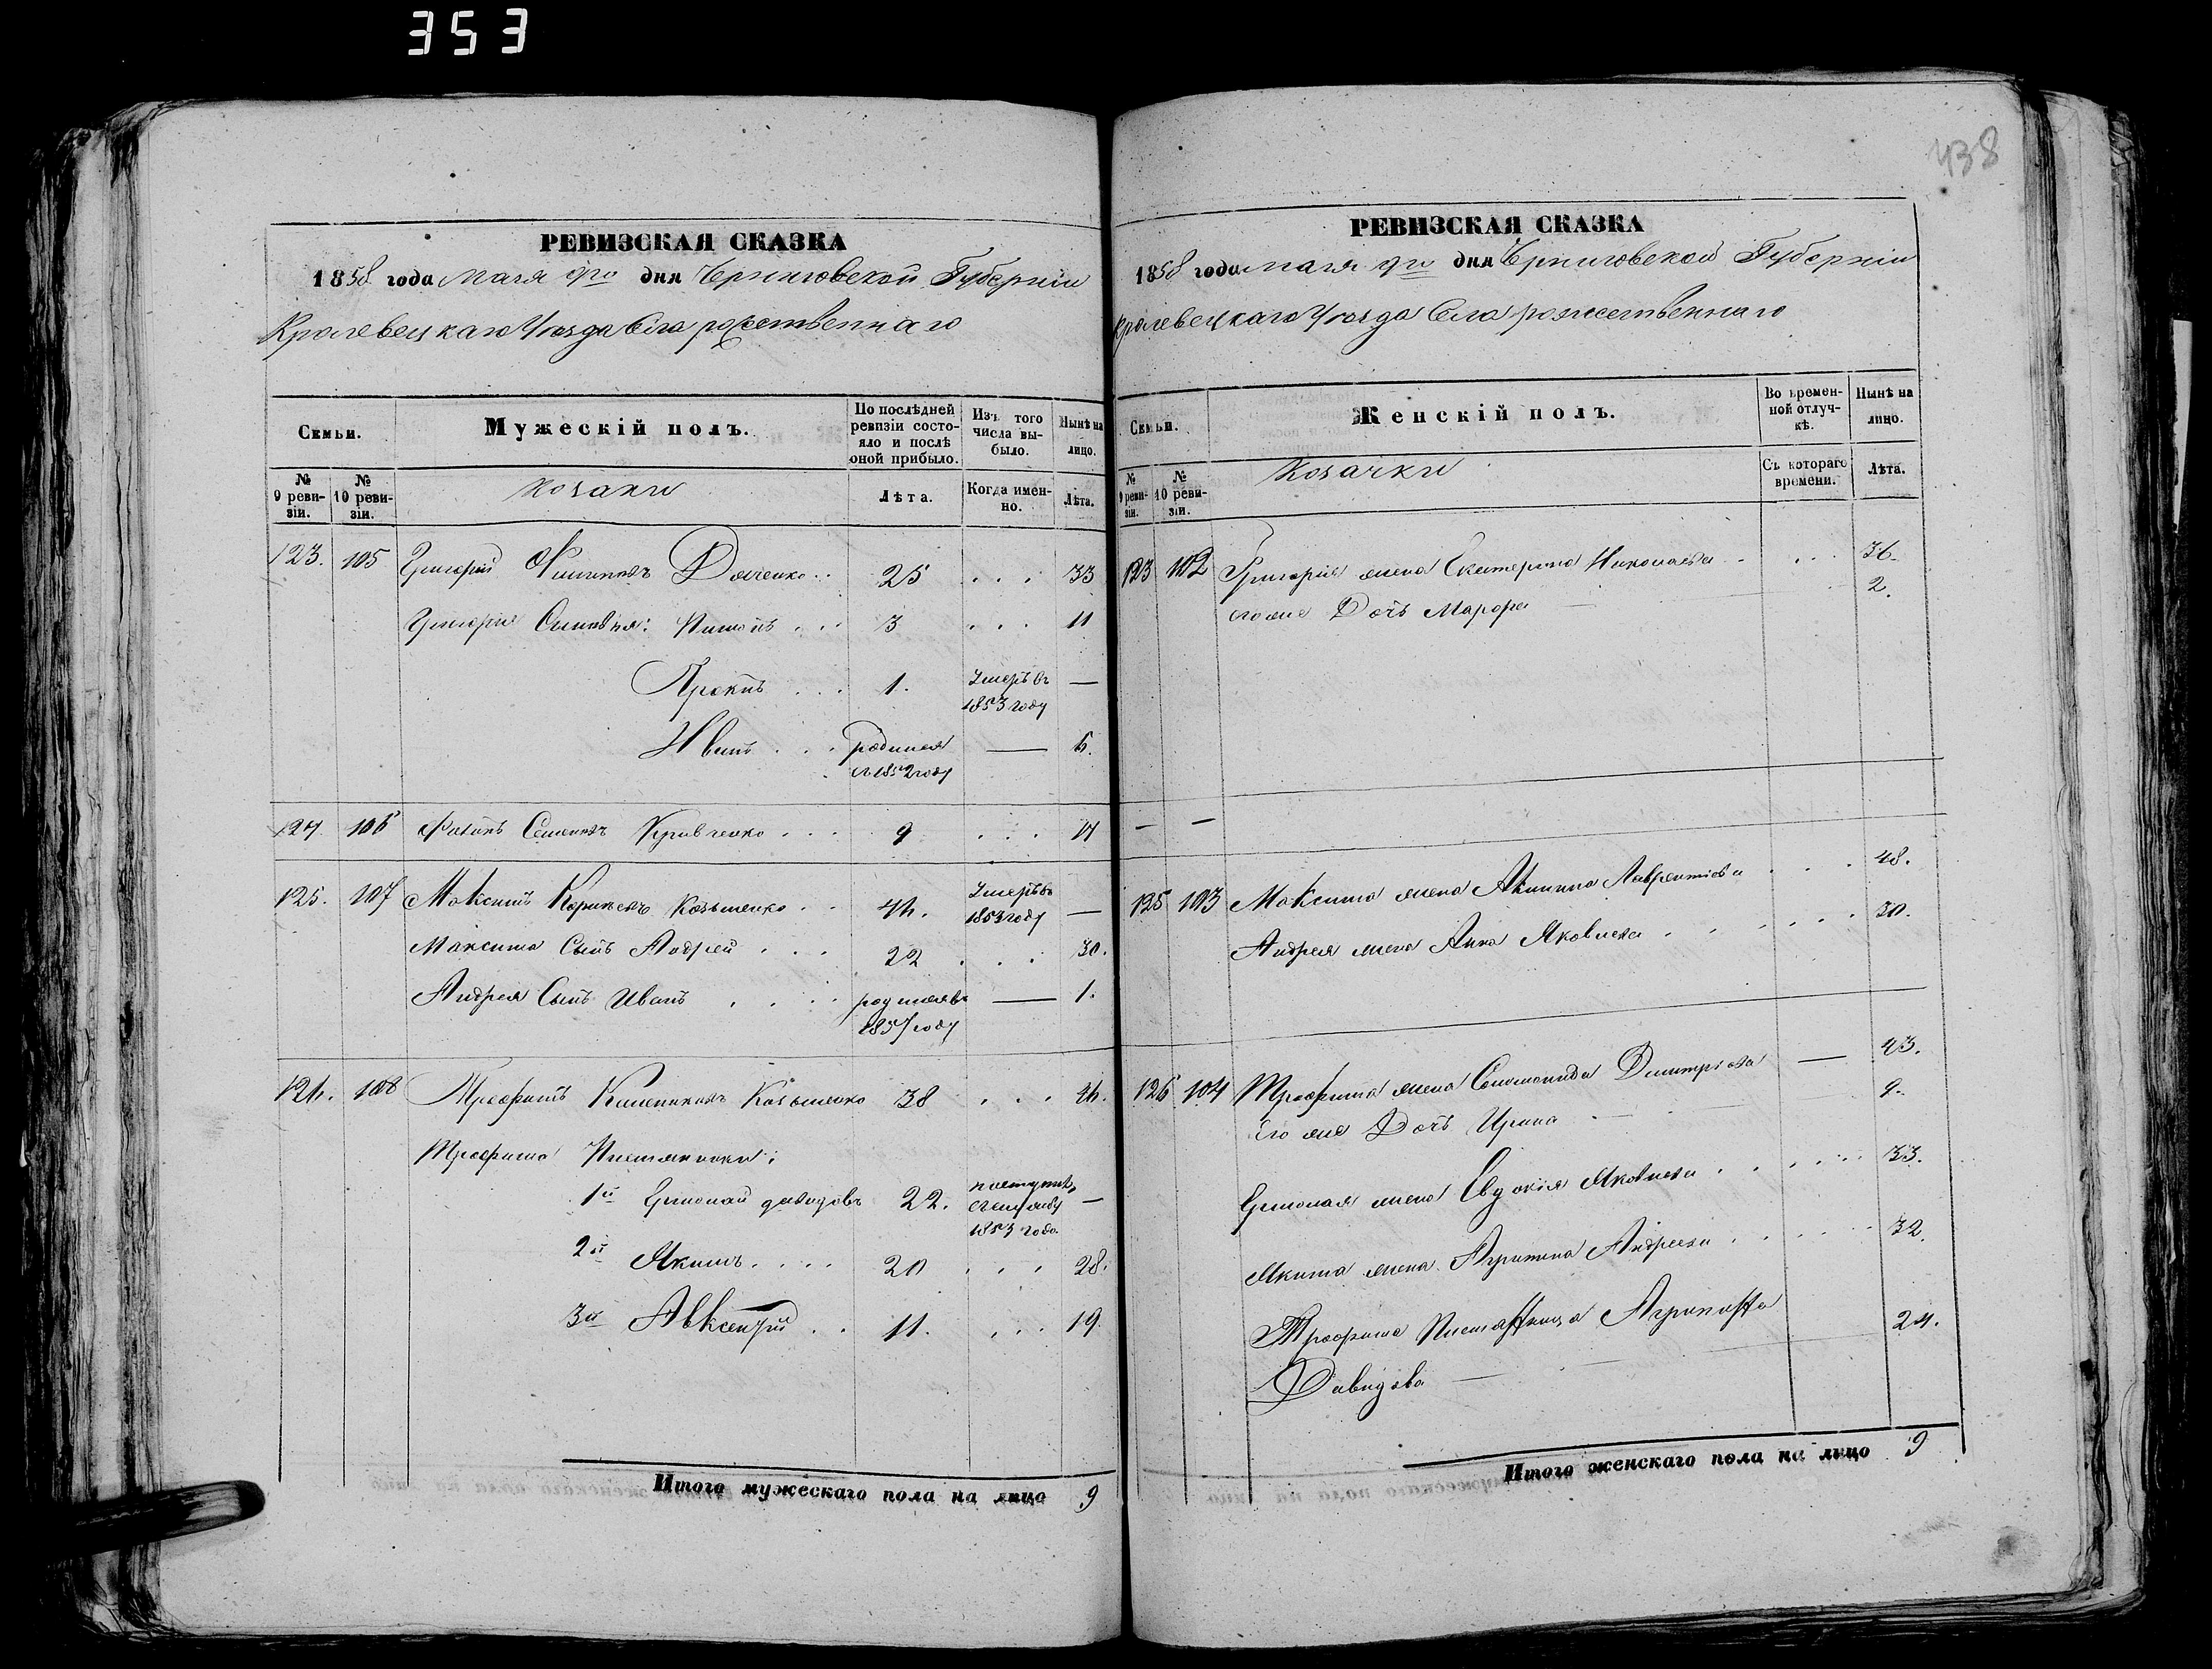 353
438
РЕВИЗСКАЯ СКАЗКА
1858 года мая 9го дня Черниговской Губерніи
Кролевецкаго Уезда Села рожественнаго
Семьи.
Мужескій полъ.
По послѣдней ревизіи состояло и послѣ оной прибыло.
Изъ того числа выбыло.
Нынѣ на лицо.
№ 9 ревизіи.
№ 10 ревизіи.
Козаки
Лѣта.
Когда именно.
Лѣта.
123. 105 Григорій Дяченко 25 33
Григорія Сыновья: 3 11
Прокіпъ 1. Умеръ въ 1853 году —
Иванъ родился въ 1852 году — 6.
124 106 Семеновъ Кравченко 9 17
125. 107 Максимъ Козьменко 46. Умеръ въ 1853 году —
Максима Сынъ Андрей 22 30.
Андрея Сынъ Иванъ родился въ 1857 году — 1.
126. 108 Трофимъ Козьменко 38 46.
Трофима Племянники:
1й Ермолай давидовъ 22. 1853 года —
2й Якимъ 20 28.
3й Авксентій 11. 19
Итого мужескаго пола на лицо 9
РЕВИЗСКАЯ СКАЗКА
1858 года мая 9го дня Черниговской Губерніи
Кролевецкаго Уезда Села рожественнаго
Семьи.
Женскій полъ.
Во временной отлучкѣ.
Нынѣ на лицо.
№ 9 ревизіи.
№ 10 ревизіи.
Козачки
Съ котораго времени.
Лѣта.
123 102 Григорія жена Екатерина Николаева 36.
его же Дочь Марфа 2.
— —
125 103 Максима жена Акилина Лаврентіева 48.
Андрея жена Анна Яковлева 30.
126 104 Трофима жена Соломонида Димитріева — 43.
Его же Дочь Ирина 9.
Ермолая жена Евдокія Яковлева 33.
Якима жена Андреева 32.
Трофима Племянница Агрипина 24.
Давидова —
Итого женскаго пола на лицо 9